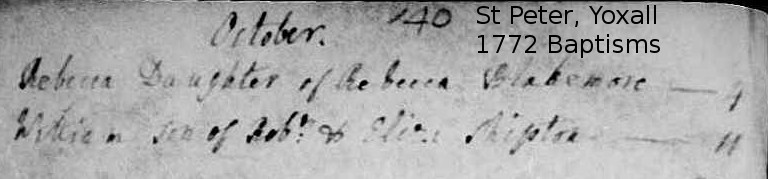 '40 St Peter, Yoxall
October. 1772 Baptisms
Rebecca Daughter of Rebecca Blakemore — 4
William son of Robt. & Eliz. Shipton — 11